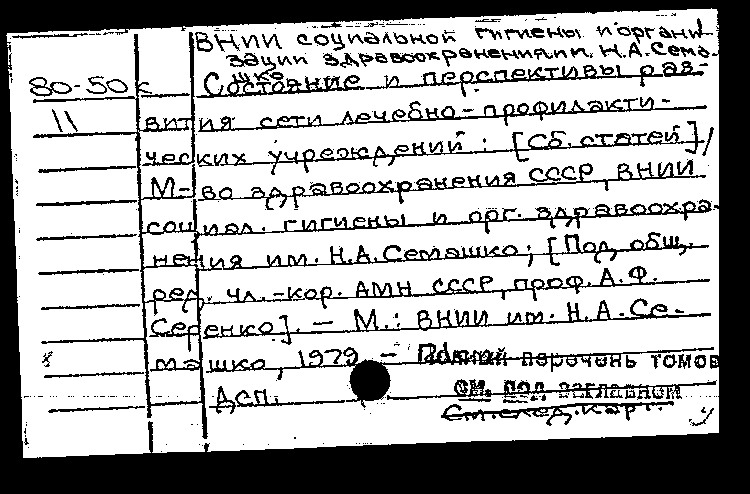 ВНИИ социальной гигиены и органи-
зации здравоохранения им. Н.А.Сема-
шко
80-50к Состояние и перспективы раз-
11 вития сети лечебно-профилакти-
ческих учреждений: [Сб. статей]/
М-во здравоохранения СССР, ВНИИ
социал. гигиены и орг. здравоохра-
нения им. Н.А.Семашко; [Под общ.
ред. чл.-кор. АМН СССР, проф. А.Ф.
Серенко]. — М.: ВНИИ им. Н.А.Се-
машко, 1979. — Полный перечень томов
Дсп. см. под заглавием
См. след. карт.